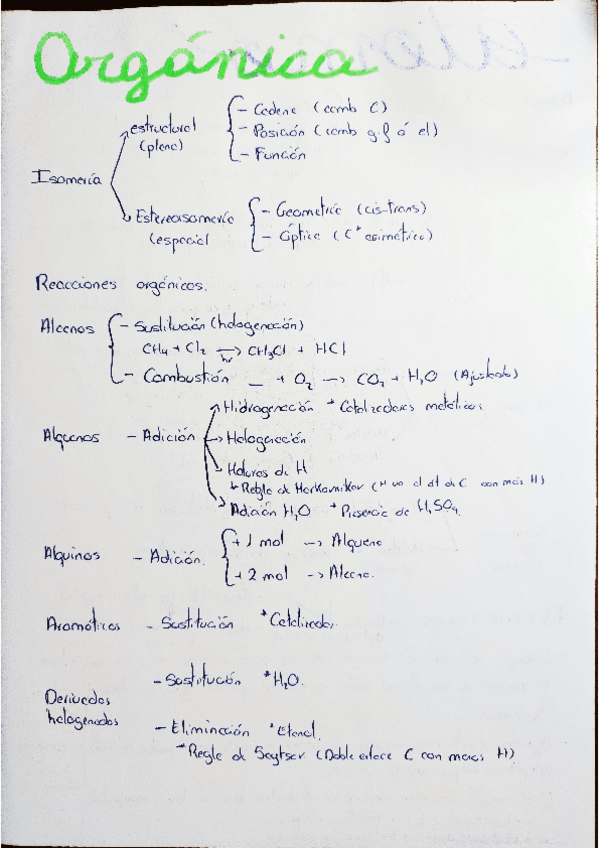 Orgánica
Isomería
estructural (plana)
- Cadena (camb C)
- Posición (camb g.f ó el)
- Función
Estereoisomería (espacial
- Geometría (cis-trans)
- Óptica (C* asimétrico)
Reacciones orgánicas.
Alcanos
- Sustitución (halogenación)
CH4 + Cl2 → hν CH3Cl + HCl
- Combustión _ + O2 → CO2 + H2O (Ajustado)
Alquenos - Adición
Hidrogenación * Catalizadores metálicos
Halogenación
Haluros de H
Regla de Markovnikov (H va al dl de C con más H)
Adición H2O * Presencia de H2SO4
Alquinos - Adición.
+ 1 mol → Alqueno
+ 2 mol → Alcano.
Aromáticos - Sustitución * Catalizador
Derivados halogenados
- Sustitución * H2O.
- Eliminación * Etanol.
Regla de Saytsev (Doble enlace C con menos H)